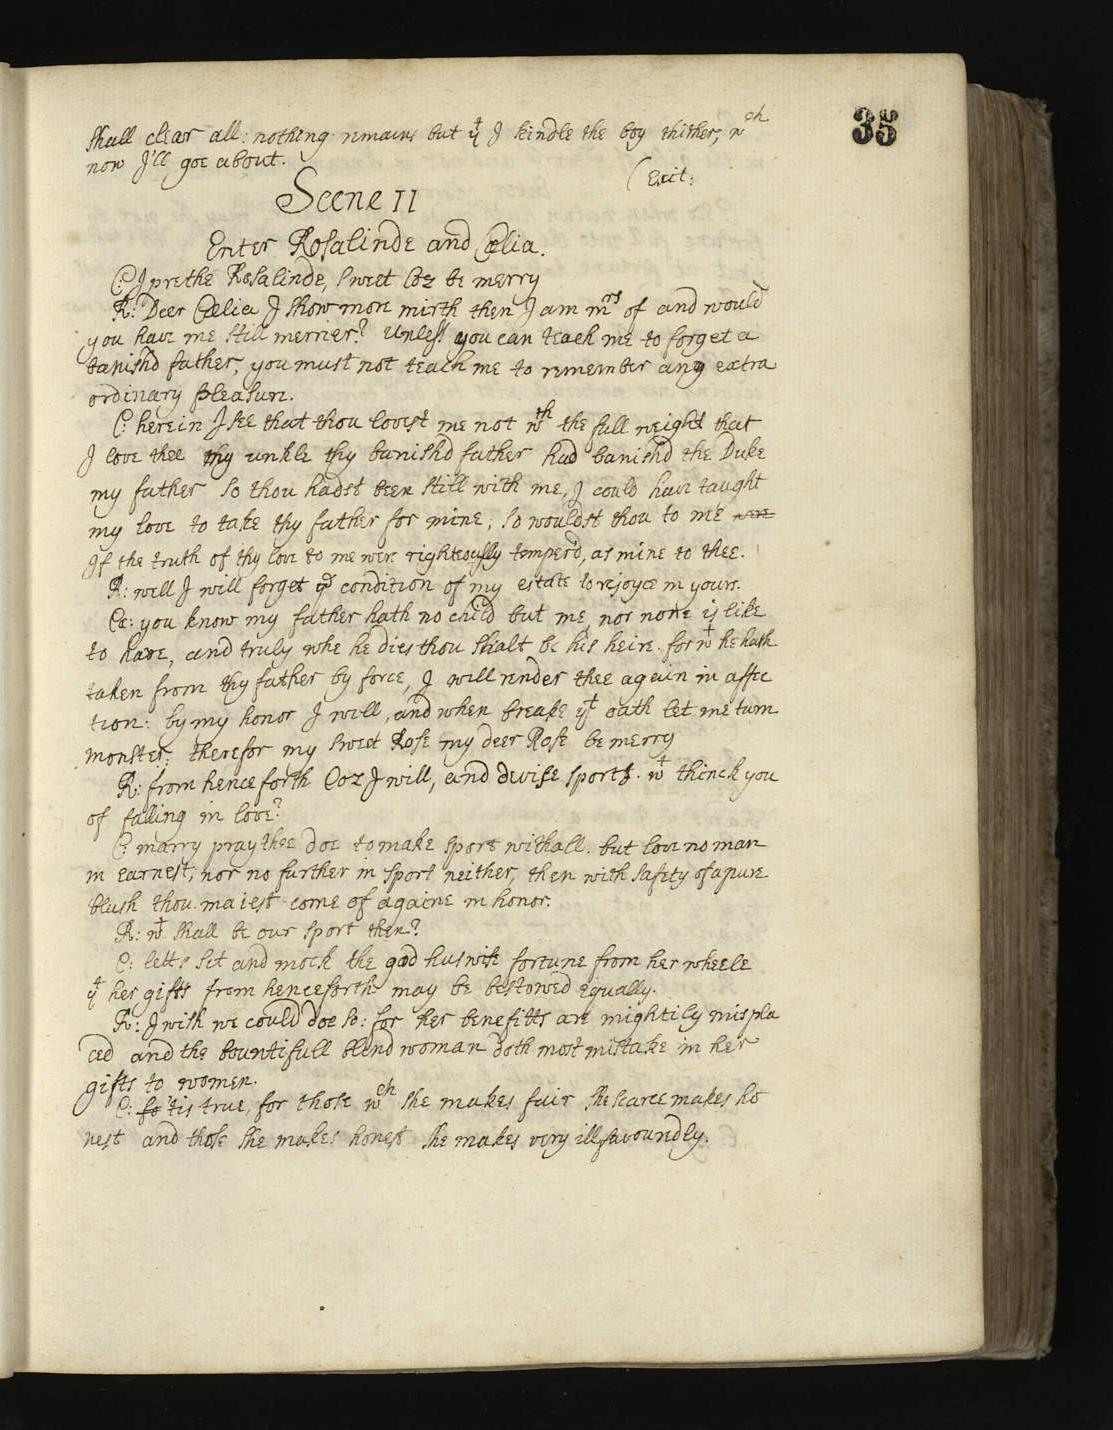 35
shall clear all: nothing remains but yt I kindle the boy thither, wch
now I'll goe about.
(Exit:
Scene II
Enter Rosalinde and Cœlia.
C: I prethe Rosalinde, sweet Coz be merry
R: Deer Cœlia I show more mirth then I am mrs of and would
you have me still merrier? Unless you can teach me to forget a
banishd father, you must not teach me to remember any extra
ordinary pleasure.
C: herein I see that thou lovest me not wth the full weight that
I love thee thy unkle thy banishd father had banishd the Duke
my father so thou hadst been still with me, I could have taught
my love to take thy father for mine; so wouldst thou to me were
If the truth of thy love to me were righteously temper'd, as mine to thee.
R: well I will forget ye condition of my estate to rejoyce in yours.
Cœ: you know my father hath no child but me, nor none is like
to have, and truly whe he dies thou shalt be his heire. for wt he hath
taken from thy father by force, I will render thee again in affec
tion: by my honor I will, and when breake yt oath let me turn
monster: therefor my sweet Rose my deer Rose be merry
R: from henceforth Coz I will, and devise sports. wt thinck you
of falling in love?
C: marry pray thee doe to make sport withall. but love no man
in earnest, nor no further in sport neither, then with safety of a pure
blush thou maiest come of againe in honor.
R: wt shall be our sport then?
C: letts sit and mock the god huswife fortune from her wheele
yt her gifts from henceforth may be bestowed equally.
R: I wish we could doe so: for her benefitts are mightily mispla
ced and the bountifull blind woman doth most mistake in her
gifts to women.
C: fo 'tis true, for those wch she makes fair she scarce makes ho
nest and those she makes honest she makes very illfavouredly.